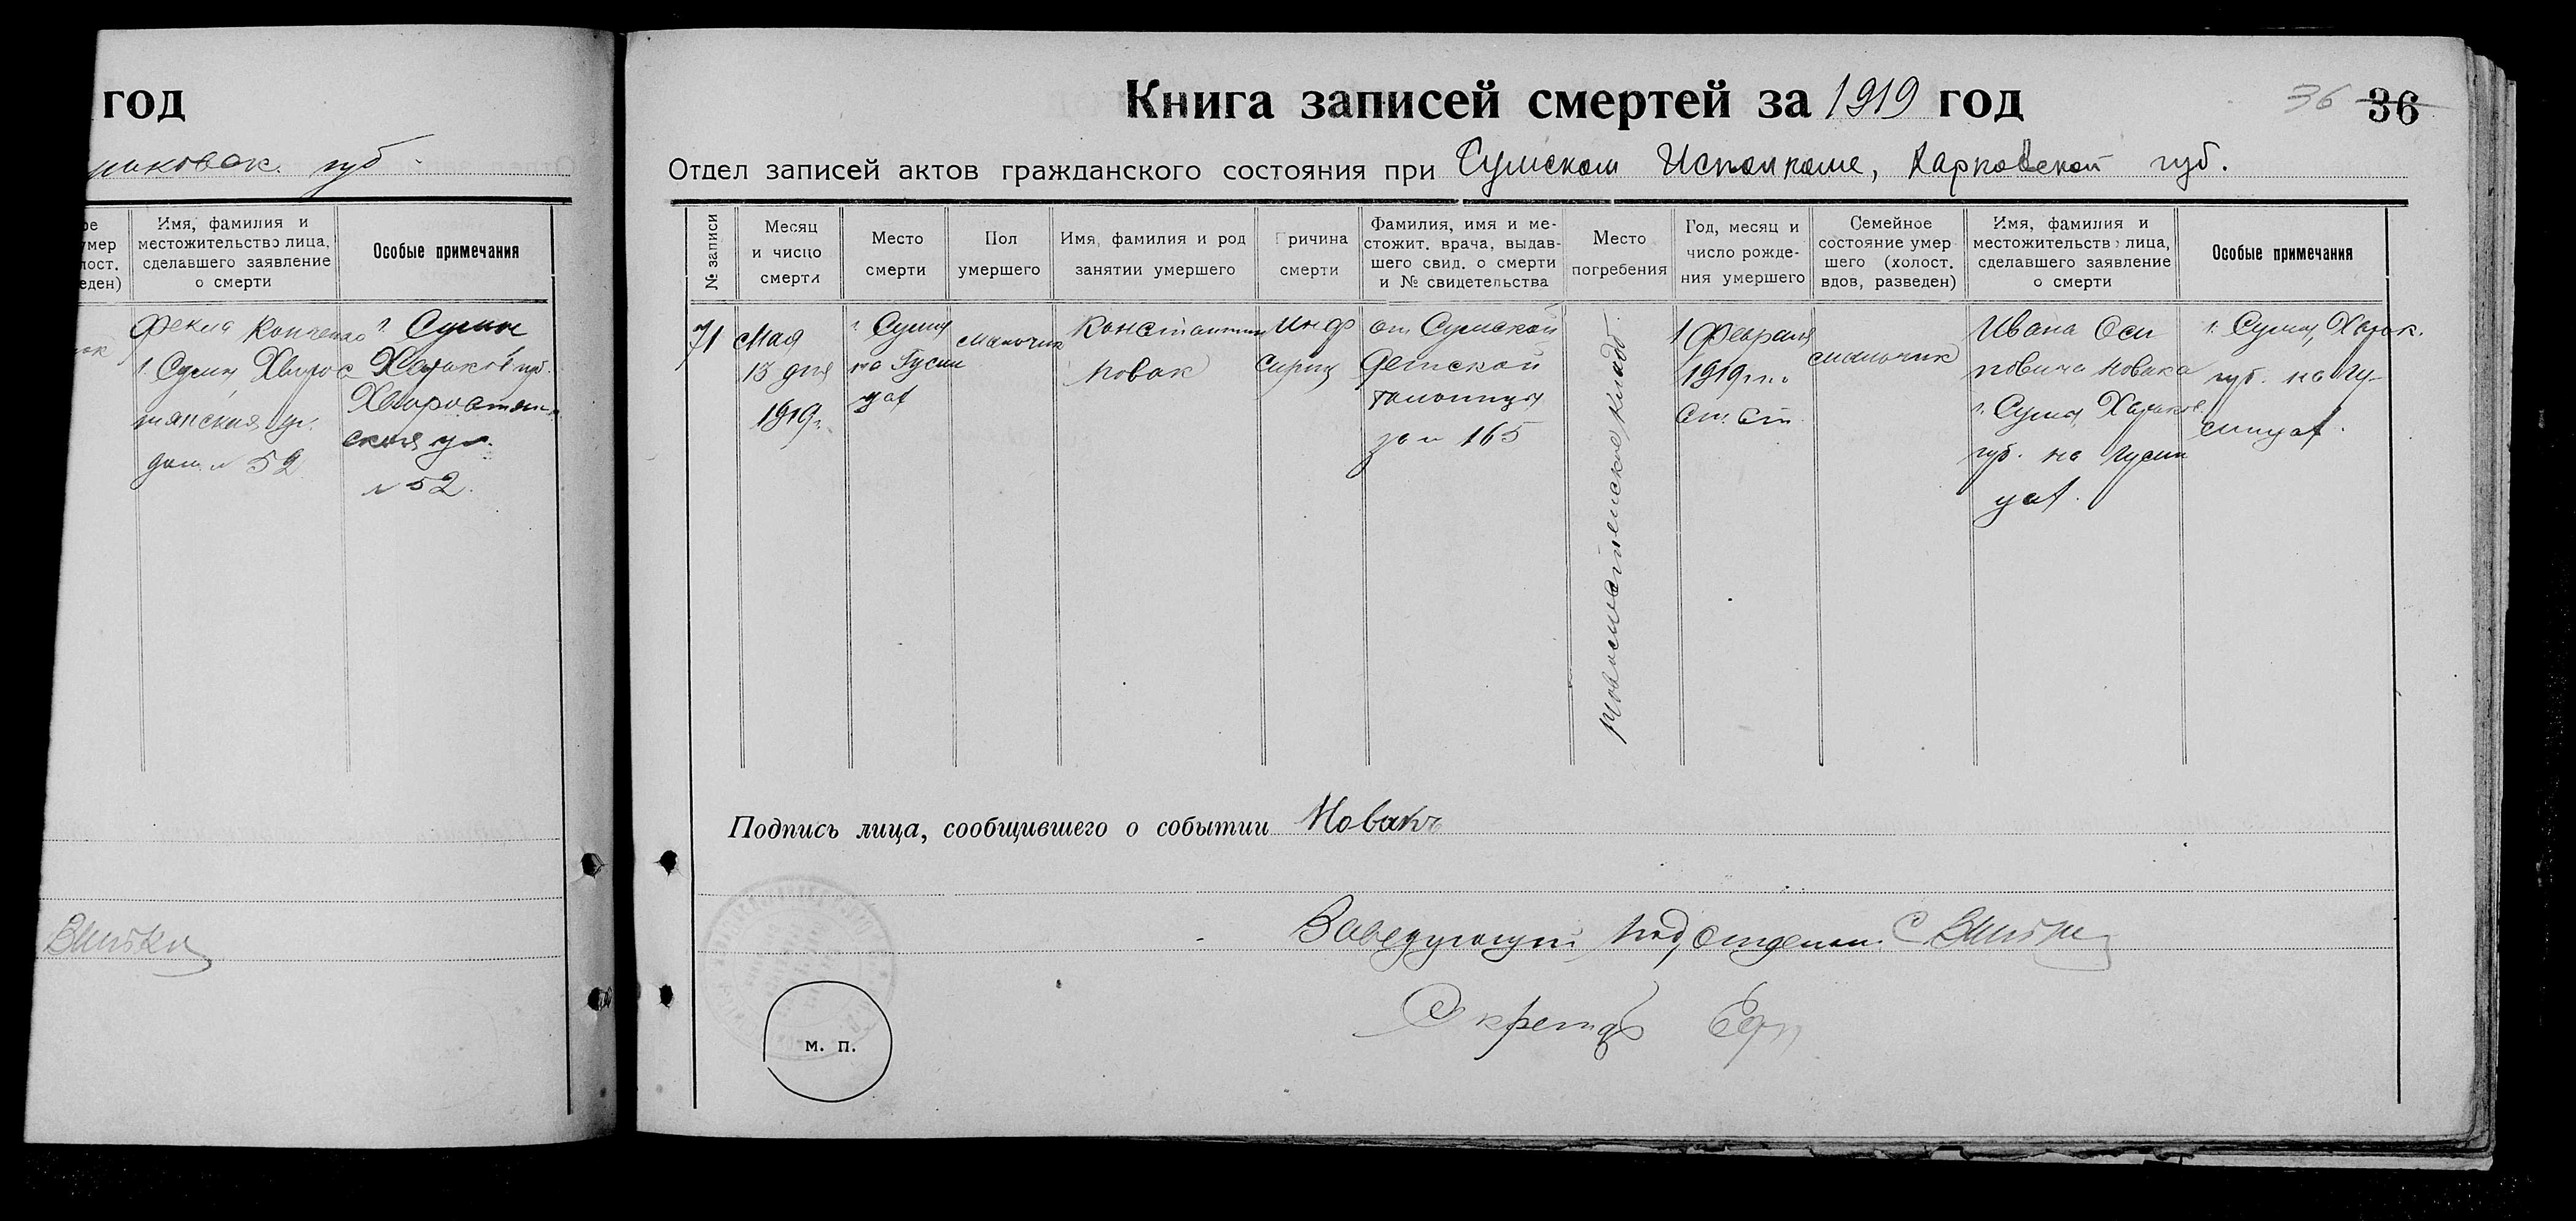 год
губ
Имя, фамилия и
местожительство лица,
сделавшего заявление
о смерти
Особые примечания
умер
лост.
еден)
Фекла
г. Сумы
ул.
дом № 52
г. Сумы
Харьков губ.
ская ул.
№ 52.
Книга записей смертей за 1919 год
36 36
Отдел записей актов гражданского состояния при Сумском Исполкоме, Харковской губ.
№ записи
Месяц
и число
смерти
Место
смерти
Пол
умершего
Имя, фамилия и род
занятии умершего
Причина
смерти
Фамилия, имя и ме-
стожит. врача, выдав-
шего свид. о смерти
и № свидетельства
Место
погребения
Год, месяц и
число рожде-
ния умершего
Семейное
состояние умер
шего (холост.
вдов, разведен)
Имя, фамилия и
местожительство лица,
сделавшего заявление
о смерти
Особые примечания
71
Мая
13 дня
1919 г.
г. Сумы
на
мальчик
Константин
Новак
от Сумской
Детской
за № 165
1 Февраля
1919 г.
ст. ст.
мальчик
Ивана Оси
повича Новака
г. Сумы, Харьков.
губ. на
г. Сумы, Харьк.
губ. на Гу-
Подпись лица, сообщившего о событии Новакъ
Заведующий Под,отделом
Секретарь
м. п.